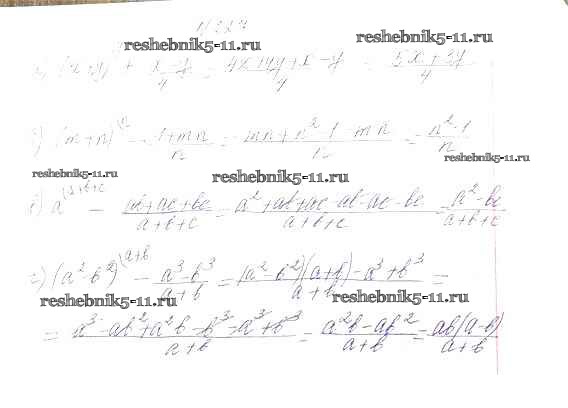 N 227
reshebnik5-11.ru
reshebnik5-11.ru
а) (x+y) + (x-y)/4 = (4x+4y+x-y)/4 = (5x+3y)/4
б) (m+n)^{\n} - (1+mn)/n = (mn+n²-1-mn)/n = (n²-1)/n
reshebnik5-11.ru
reshebnik5-11.ru
reshebnik5-11.ru
в) a^{\a+b+c} - (ab+ac+bc)/(a+b+c) = (a²+ab+ac-ab-ac-bc)/(a+b+c) = (a²-bc)/(a+b+c)
г) (a²-b²)^{\a+b} - (a³-b³)/(a+b) = ((a²-b²)(a+b)-a³+b³)/(a+b) =
reshebnik5-11.ru
reshebnik5-11.ru
= (a³-ab²+a²b-b³-a³+b³)/(a+b) = (a²b-ab²)/(a+b) = ab(a-b)/(a+b)